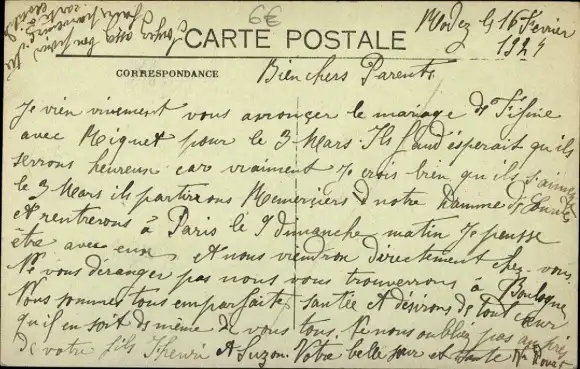 6€
CARTE POSTALE
CORRESPONDANCE
Rodez le 16 Fevrier
1924
Bien chers Parents
Je vien vivement vous annonçer le mariage de Fifine
avec Miquet pour le 3 Mars. Ils faud éspérait qu'ils
serrons heureux car vraiment Je crois bien qu'ils s'aime
le 3 Mars ils partirons Remerçiers notre Damme de
Et rentrerons à Paris le 9 dimanche matin Je pensse
être avec eux Et nous viendron directement chez vous
Ne vous déranger pas nous vous trouverrons à Boulogne
Nous sommes tous emparfaite santée Et désirons de tout cœur
qu'il en soit de même de vous tous. Ne nous oubliez pas auprès
de votre fils Henri et Suzon. Votre belle sœur et